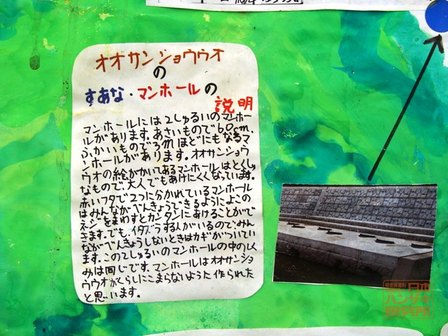 オオサンショウウオ
の
すあな・マンホールの
説明
マンホールには2しゅるいのマンホー
ルがあります。あさいもので60cm、
ふかいもので3mほどにもなるマ
ンホールがあります。オオサンショウ
ウオの絵がかいてあるマンホールはとくしゅ
なもので、大人でもあけにくくなっています。
赤いフタで2つに分かれているマンホール
はみんなが べんきょうできるように、よこの
ネジをまわすとカンタンにあけることがで
きます。でも、イタズラする人がいるので、みん
なが べんきょうしないときはカギがついてい
ます。この2しゅるいのマンホールの中のしく
みは同じです。マンホールはオオサンショ
ウウオがくらしにこまらないように作られた
と思います。